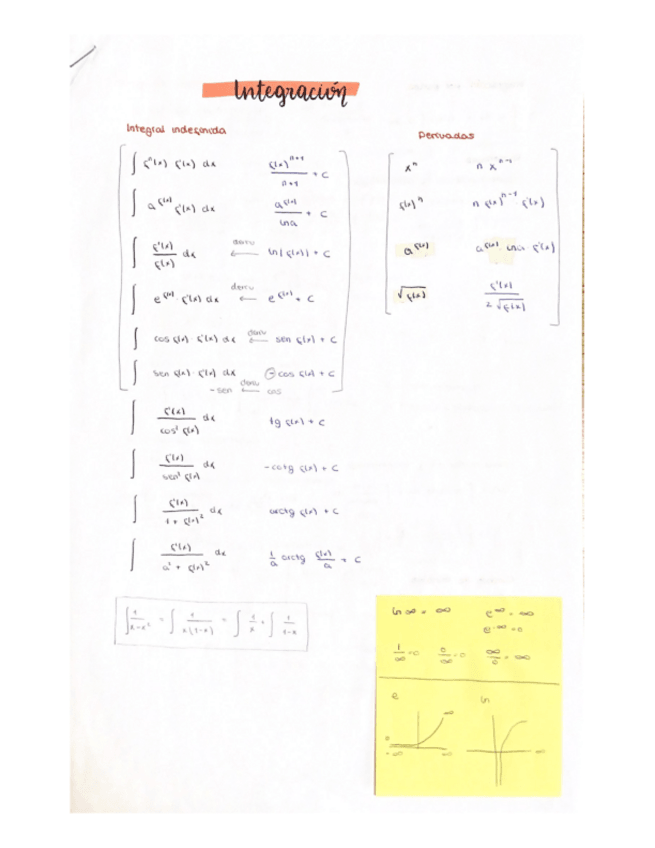 Integración
Integral indefinida
∫ fⁿ(x) f'(x) dx    f(x)ⁿ⁺¹ / n+1 + C
∫ a^f(x) f'(x) dx    a^f(x) / ln a + C
∫ f'(x) / f(x) dx  deriv ←  ln|f(x)| + C
∫ e^f(x) · f'(x) dx  deriv ←  e^f(x) + C
∫ cos f(x) · f'(x) dx  deriv ←  sen f(x) + C
∫ sen f(x) · f'(x) dx    - cos f(x) + C
- sen  deriv ←  cos
∫ f'(x) / cos² f(x) dx    tg f(x) + C
∫ f'(x) / sen² f(x) dx    - cotg f(x) + C
∫ f'(x) / 1 + f(x)² dx    arctg f(x) + C
∫ f'(x) / a² + f(x)² dx    1/a arctg f(x)/a + C
∫ 1/x-x² = ∫ 1/x(1-x) = ∫ 1/x + ∫ 1/1-x
Derivadas
xⁿ    n xⁿ⁻¹
f(x)ⁿ    n f(x)ⁿ⁻¹ f'(x)
a^f(x)    a^f(x) · ln a · f'(x)
√f(x)    f'(x) / 2 √f(x)
ln ∞ = ∞    e^∞ = ∞
e^-∞ = 0
1/∞ = 0    0/∞ = 0    ∞/0 = ∞
e    ln
∞
0
-∞    ∞    ∞